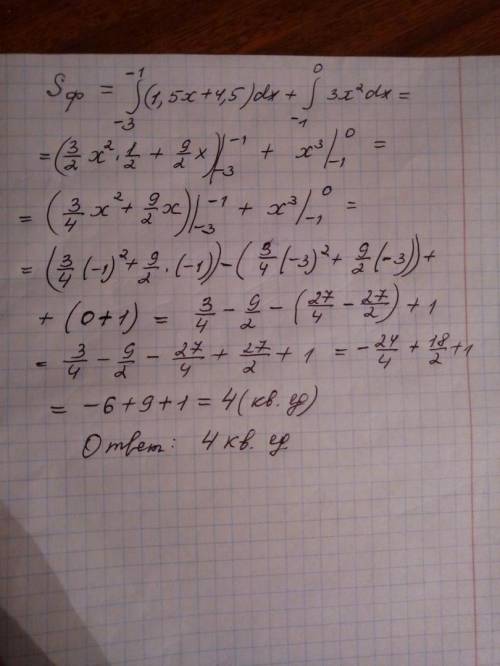 Sф = ∫₋₃⁻¹ (1,5x+4,5)dx + ∫₋₁⁰ 3x²dx =
= (3/2 x² · 1/2 + 9/2 x)|₋₃⁻¹ + x³|₋₁⁰ =
= (3/4 x² + 9/2 x)|₋₃⁻¹ + x³|₋₁⁰ =
= (3/4 (-1)² + 9/2 · (-1)) - (3/4 (-3)² + 9/2 (-3)) +
+ (0+1) = 3/4 - 9/2 - (27/4 - 27/2) + 1
= 3/4 - 9/2 - 27/4 + 27/2 + 1 = -24/4 + 18/2 + 1
= -6+9+1 = 4 (кв. ед)
Ответ: 4 кв. ед